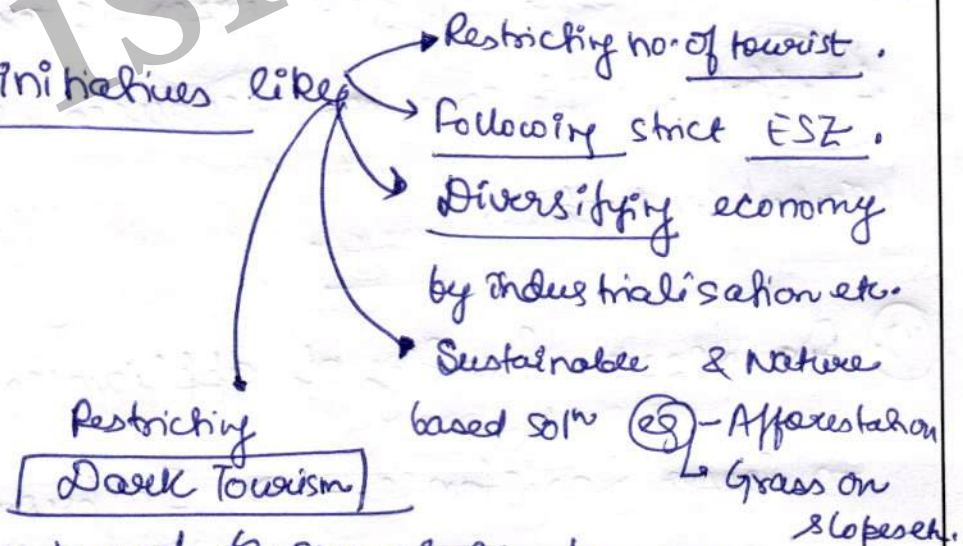 initiatives like
Restricting no. of tourist.
Following strict ESZ.
Diversifying economy
by industrialisation etc.
Sustainable & Nature
based solⁿ eg - Afforestation
Grass on
slopes etc.
Restricting
Dark Tourism